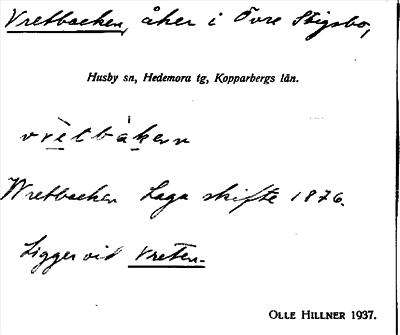 Vretbacken, åker i Övre Stigsbo,
Husby sn, Hedemora tg, Kopparbergs län.
vrètbàkenn
Wretbacken Laga skifte 1876.
Ligger vid Vreten.
OLLE HILLNER 1937.